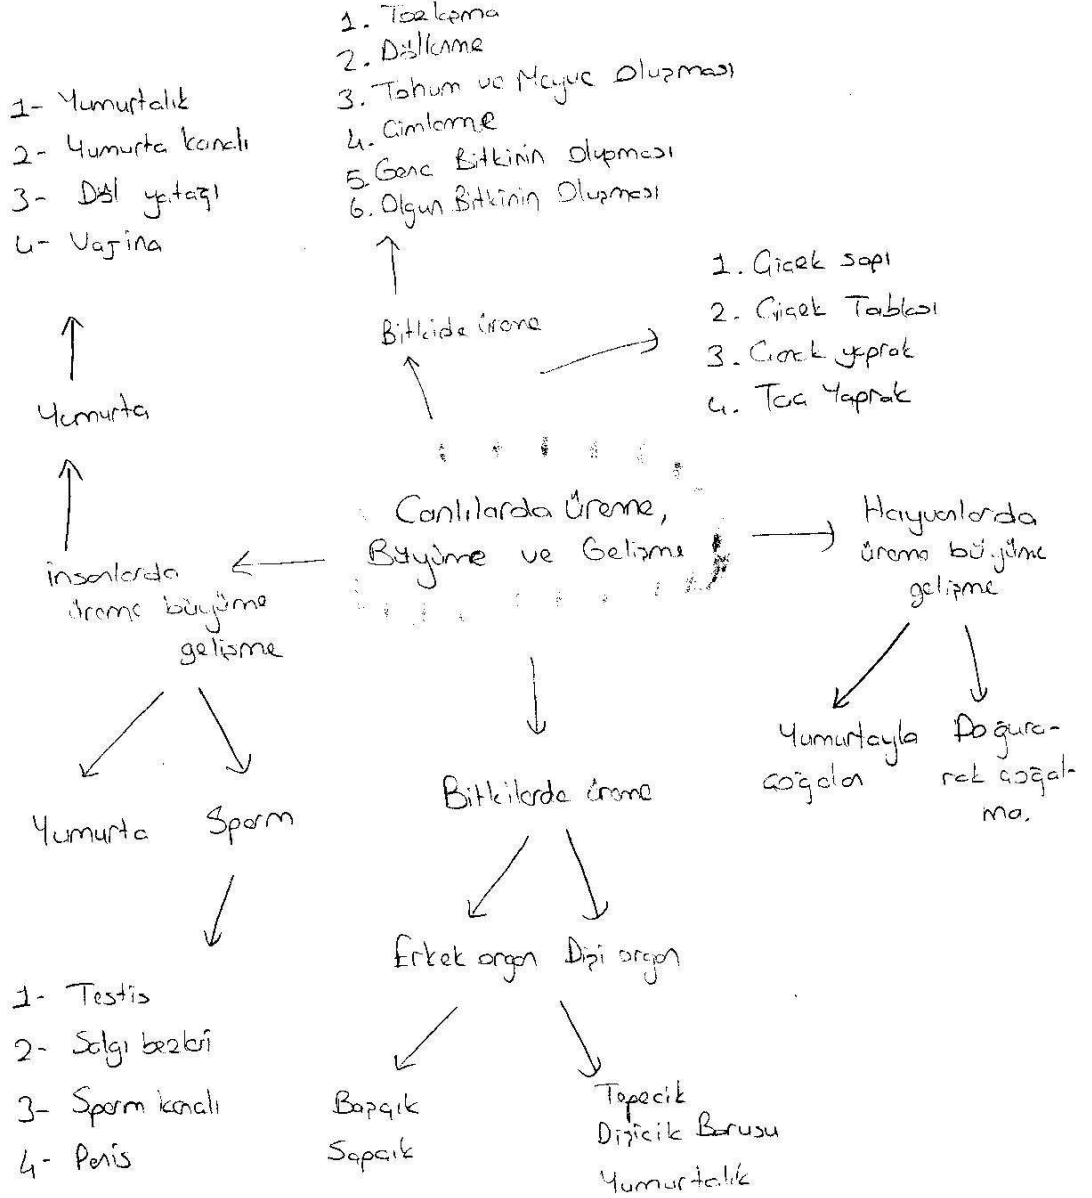 1. Tozlaşma
2. Döllenme
3. Tohum ve Meyve Oluşması
4. Çimlenme
5. Genç Bitkinin Oluşması
6. Olgun Bitkinin Oluşması
1- Yumurtalık
2- Yumurta kanalı
3- Döl yatağı
4- Vajina
Bitkide üreme
1. Çiçek sapı
2. Çiçek Tablası
3. Çanak yaprak
4. Taç Yaprak
Yumurta
Canlılarda Üreme,
Büyüme ve Gelişme
Hayvanlarda
üreme büyüme
gelişme
insanlarda
üreme büyüme
gelişme
Yumurtayla
çoğalan
Doğura-
rak çoğal-
ma.
Bitkilerde üreme
Yumurta
Sperm
Erkek organ
Dişi organ
1- Testis
2- Salgı bezleri
3- Sperm kanalı
4- Penis
Başçık
Sapçık
Tepecik
Dişicik Borusu
Yumurtalık